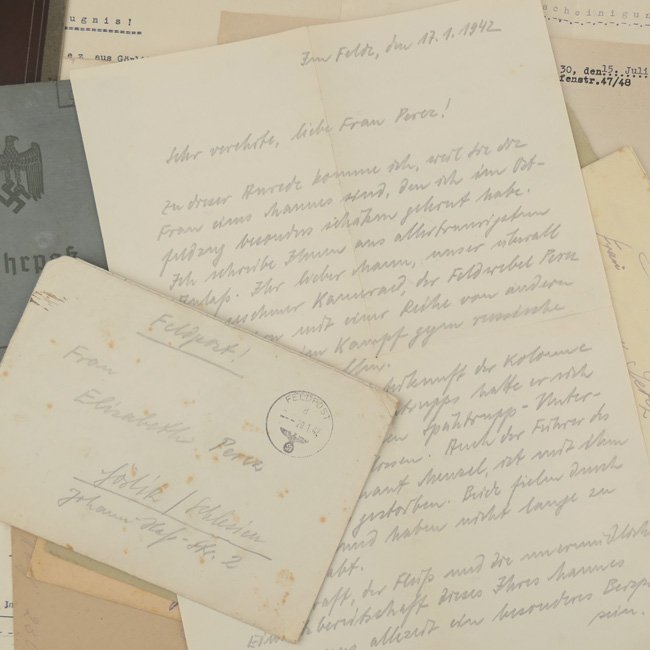 ugnis!
e,z. aus Görli
scheinigun
30, den 15. Juli
fenstr.47/48
hrpaß
Im Felde, den 17.1.1942
Sehr verehrte, liebe Frau Perez!
Zu dieser Anrede komme ich, weil Sie die
Frau eines Mannes sind, den ich im Ost-
feldzug besonders schätzen gelernt habe.
Ich schreibe Ihnen aus allertraurigstem
Anlaß. Ihr lieber Mann, unser überall
Kamerad, der Feldwebel Perez
mit einer Reihe von anderen
Kampf gegen russische
der Kolonne
trupps hatte er sich
Spähtrupp-Unter-
Auch der Führer des
Menzel, ist mit ihm
gestorben. Beide fielen durch
und haben nicht lange zu
der Fleiß und die unermüdliche
bereitschaft dieses Ihres Mannes
allezeit ein besonderes Beispiel
sein.
Feldpost!
Frau
Elisabeth Perez
Görlitz/Schlesien
Johann-Haß-Str. 2
FELDPOST
Frau